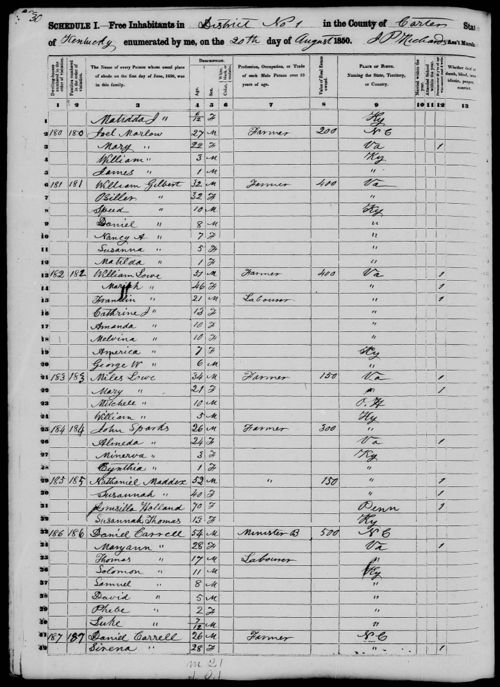 SCHEDULE I.—Free Inhabitants in District No 1 in the County of Carter State
of Kentucky enumerated by me, on the 20th day of August 1850. J P Richards Ass't Marshal
Dwelling-houses numbered in the order of visitation.
Families numbered in the order of visitation.
The Name of every Person whose usual place of abode on the first day of June, 1850, was in this family.
DESCRIPTION.
Age. Sex.
Profession, Occupation, or Trade of each Male Person over 15 years of age.
Value of Real Estate owned.
PLACE OF BIRTH. Naming the State, Territory, or Country.
1 2 3 4 5 6 7 8 9 10 11 12 13
1 Matilda J " F Ky
2 180 180 Joel Marlow 27 M Farmer 200 N C
3 Mary " 22 F Va 1
4 William " 3 M Ky
5 James " 1 M "
6 181 181 William Gilbert 32 M Farmer 400 Va
7 " 32 F "
8 Speed " 10 M Ky
9 Daniel " 8 M "
10 Nancy A " 7 F "
11 Susanna " 5 F "
12 Matilda " 1 F "
13 182 182 William Lowe 51 M Farmer 400 Va 1
14 " 46 F " 1
15 Franklin " 21 M Labourer " 1
16 Cathrine J " 13 F "
17 Amanda " 10 F "
18 Melvina " 10 F "
19 America " 7 F Ky
20 George W " 6 M "
21 183 183 Miles Lowe 34 M Farmer 150 Va 1
22 Mary " 21 F " 1
23 Mitchell " 10 M
24 William " 5 M Ky
25 184 184 John Sparks 26 M Farmer 300 "
26 Almeda " 24 F Va 1
27 Minerva " 3 F Ky
28 Cynthia " 1 F "
29 185 185 Nathaniel Maddox 52 M " 150 " 1
30 Susannah " 40 F " 1
31 Holland 70 F Penn 1
32 Susannah Thomas 13 F Ky
33 186 186 Daniel Carrell 54 M Minister B 500 N C
34 Maryann " 28 F Va 1
35 Thomas " 17 M Labourer "
36 Solomon " 11 M Ky
37 Samuel " 8 M "
38 David " 5 M "
39 Phebe " 2 F "
40 Luke " M "
41 187 187 Daniel Carrell 26 M Farmer N C
42 Sirena " 28 F " 1
m 21